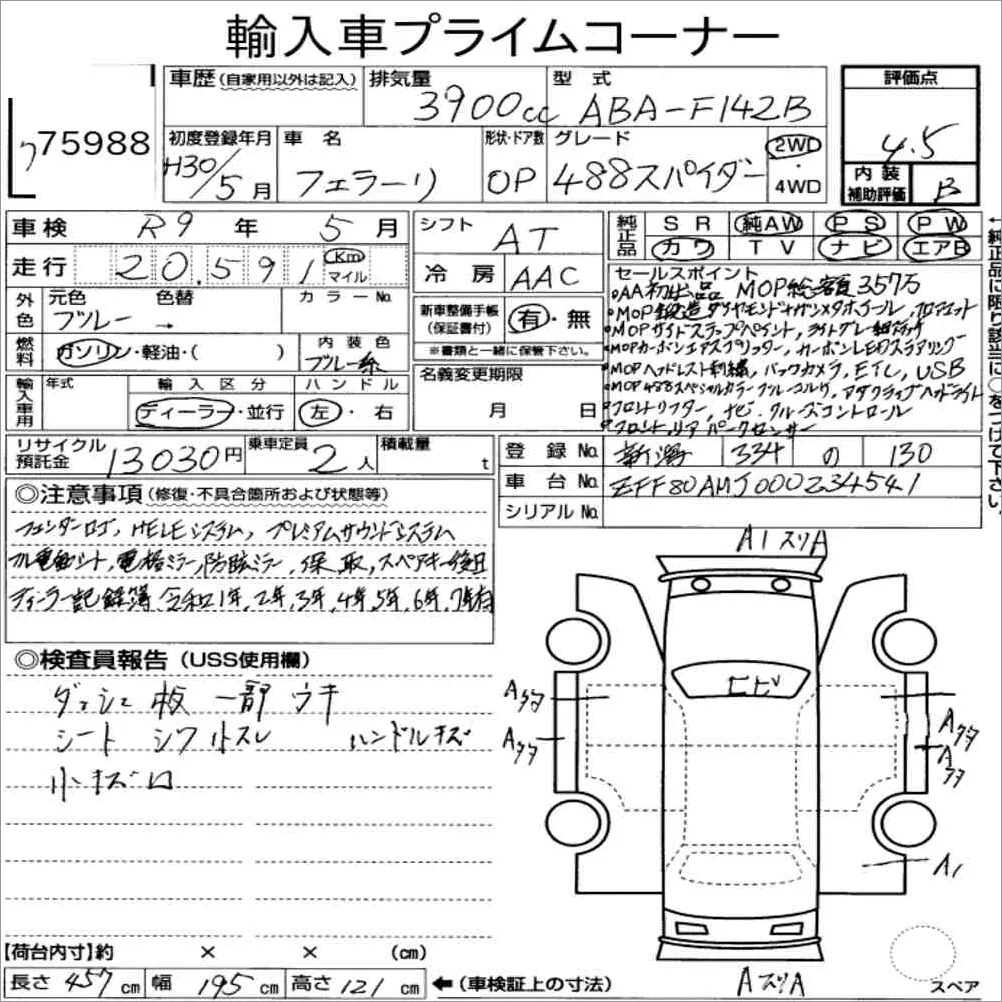 輸入車プライムコーナー
75988
車歴(自家用以外は記入)
排気量 3900cc
型式 ABA-F142B
評価点 4.5
内装補助評価 B
初度登録年月 H30/5月
車名 フェラーリ
形状・ドア数 OP
グレード 488スパイダー
2WD・4WD
車検 R9年 5月
走行 20,591 Km マイル
シフト AT
冷房 AAC
純正品 SR 純AW PS PW
カワ TV ナビ エアB
←純正品に限り該当に○をつけて下さい。
外色 元色 ブルー 色替 → カラーNo.
燃料 ガソリン・軽油・( )
内装色 ブルー系
新車整備手帳(保証書付) 有・無
※書類と一緒に保管下さい。
名義変更期限 月 日
輸入車用 年式 輸入区分 ディーラー・並行 ハンドル 左・右
セールスポイント
・AA初出品 MOP総額357万
・MOP鍛造ダイヤモンド ホイール,
・MOPサイドステップペイント, ライトグレー
・MOPカーボンエアスプリッター, カーボンLEDステアリング
・MOPヘッドレスト刺繍, バックカメラ, ETC, USB
・MOP488スペシャルカラーブルーコルサ, アダプティブヘッドライト
・フロントリフター, ナビ・クルーズコントロール
・フロント,リアパークセンサー
リサイクル預託金 13030円
乗車定員 2人
積載量 t
登録No. 新潟 334 の 130
車台No. ZFF80AMJ000234541
シリアルNo.
◎注意事項(修復・不具合箇所および状態等)
フェンダーロゴ, HELEシステム, プレミアムサウンドシステム
フル電動シート, 電格ミラー, 防眩ミラー, 保, 取, スペアキー後日
ディーラー記録簿 令和1年, 2年, 3年, 4年, 5年, 6年, 7年有
◎検査員報告(USS使用欄)
ダッシュ板 一部 ウキ
シート シワ 小スレ ハンドルキズ
小キズ
A1スリA
トビ
Aタタ
Aタタ
Aタタ
Aタタ
A1
AスリA
スペア
【荷台内寸】約 × × (cm)
長さ 457cm 幅 195cm 高さ 121cm ←(車検証上の寸法)